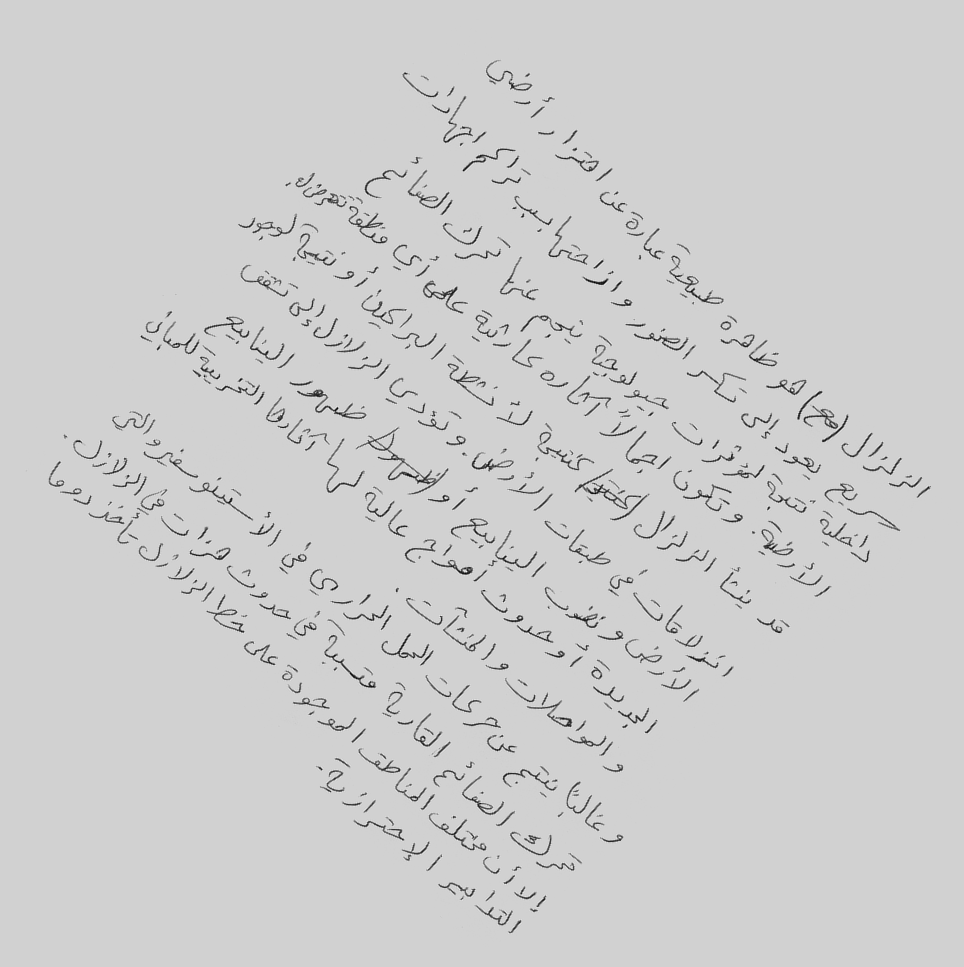 الزلزال هو ظاهرة طبيعية عبارة عن اهتزاز أرضي
سريع يعود إلى تكسر الصخور وازاحتها بسبب تراكم اجهادات
داخلية نتيجة لمؤثرات جيولوجية ينجم عنها تحرك الصفائح
الأرضية. وتكون اجمالاً آثاره كارثية على أي منطقة تتعرض له.
قد ينشأ الزلزال كنتيجة لأنشطة البراكين أو نتيجة لوجود
انزلاقات في طبقات الأرض. وتؤدي الزلازل إلى تشقق
الأرض ونضوب الينابيع أو ظهور الينابيع
الجديدة أو حدوث أمواج عالية لها آثارها التخريبية للمباني
والمواصلات والمنشآت.
وغالبًا ينتج عن حركات الحمل الحراري في الأستينوسفير والتي
تحرك الصفائح القارية متسببة في حدوث هزات في الزلازل.
إلا أن مختلف المناطق الموجودة على خط الزلازل تأخذ دوما
التدابير الإحترازية.